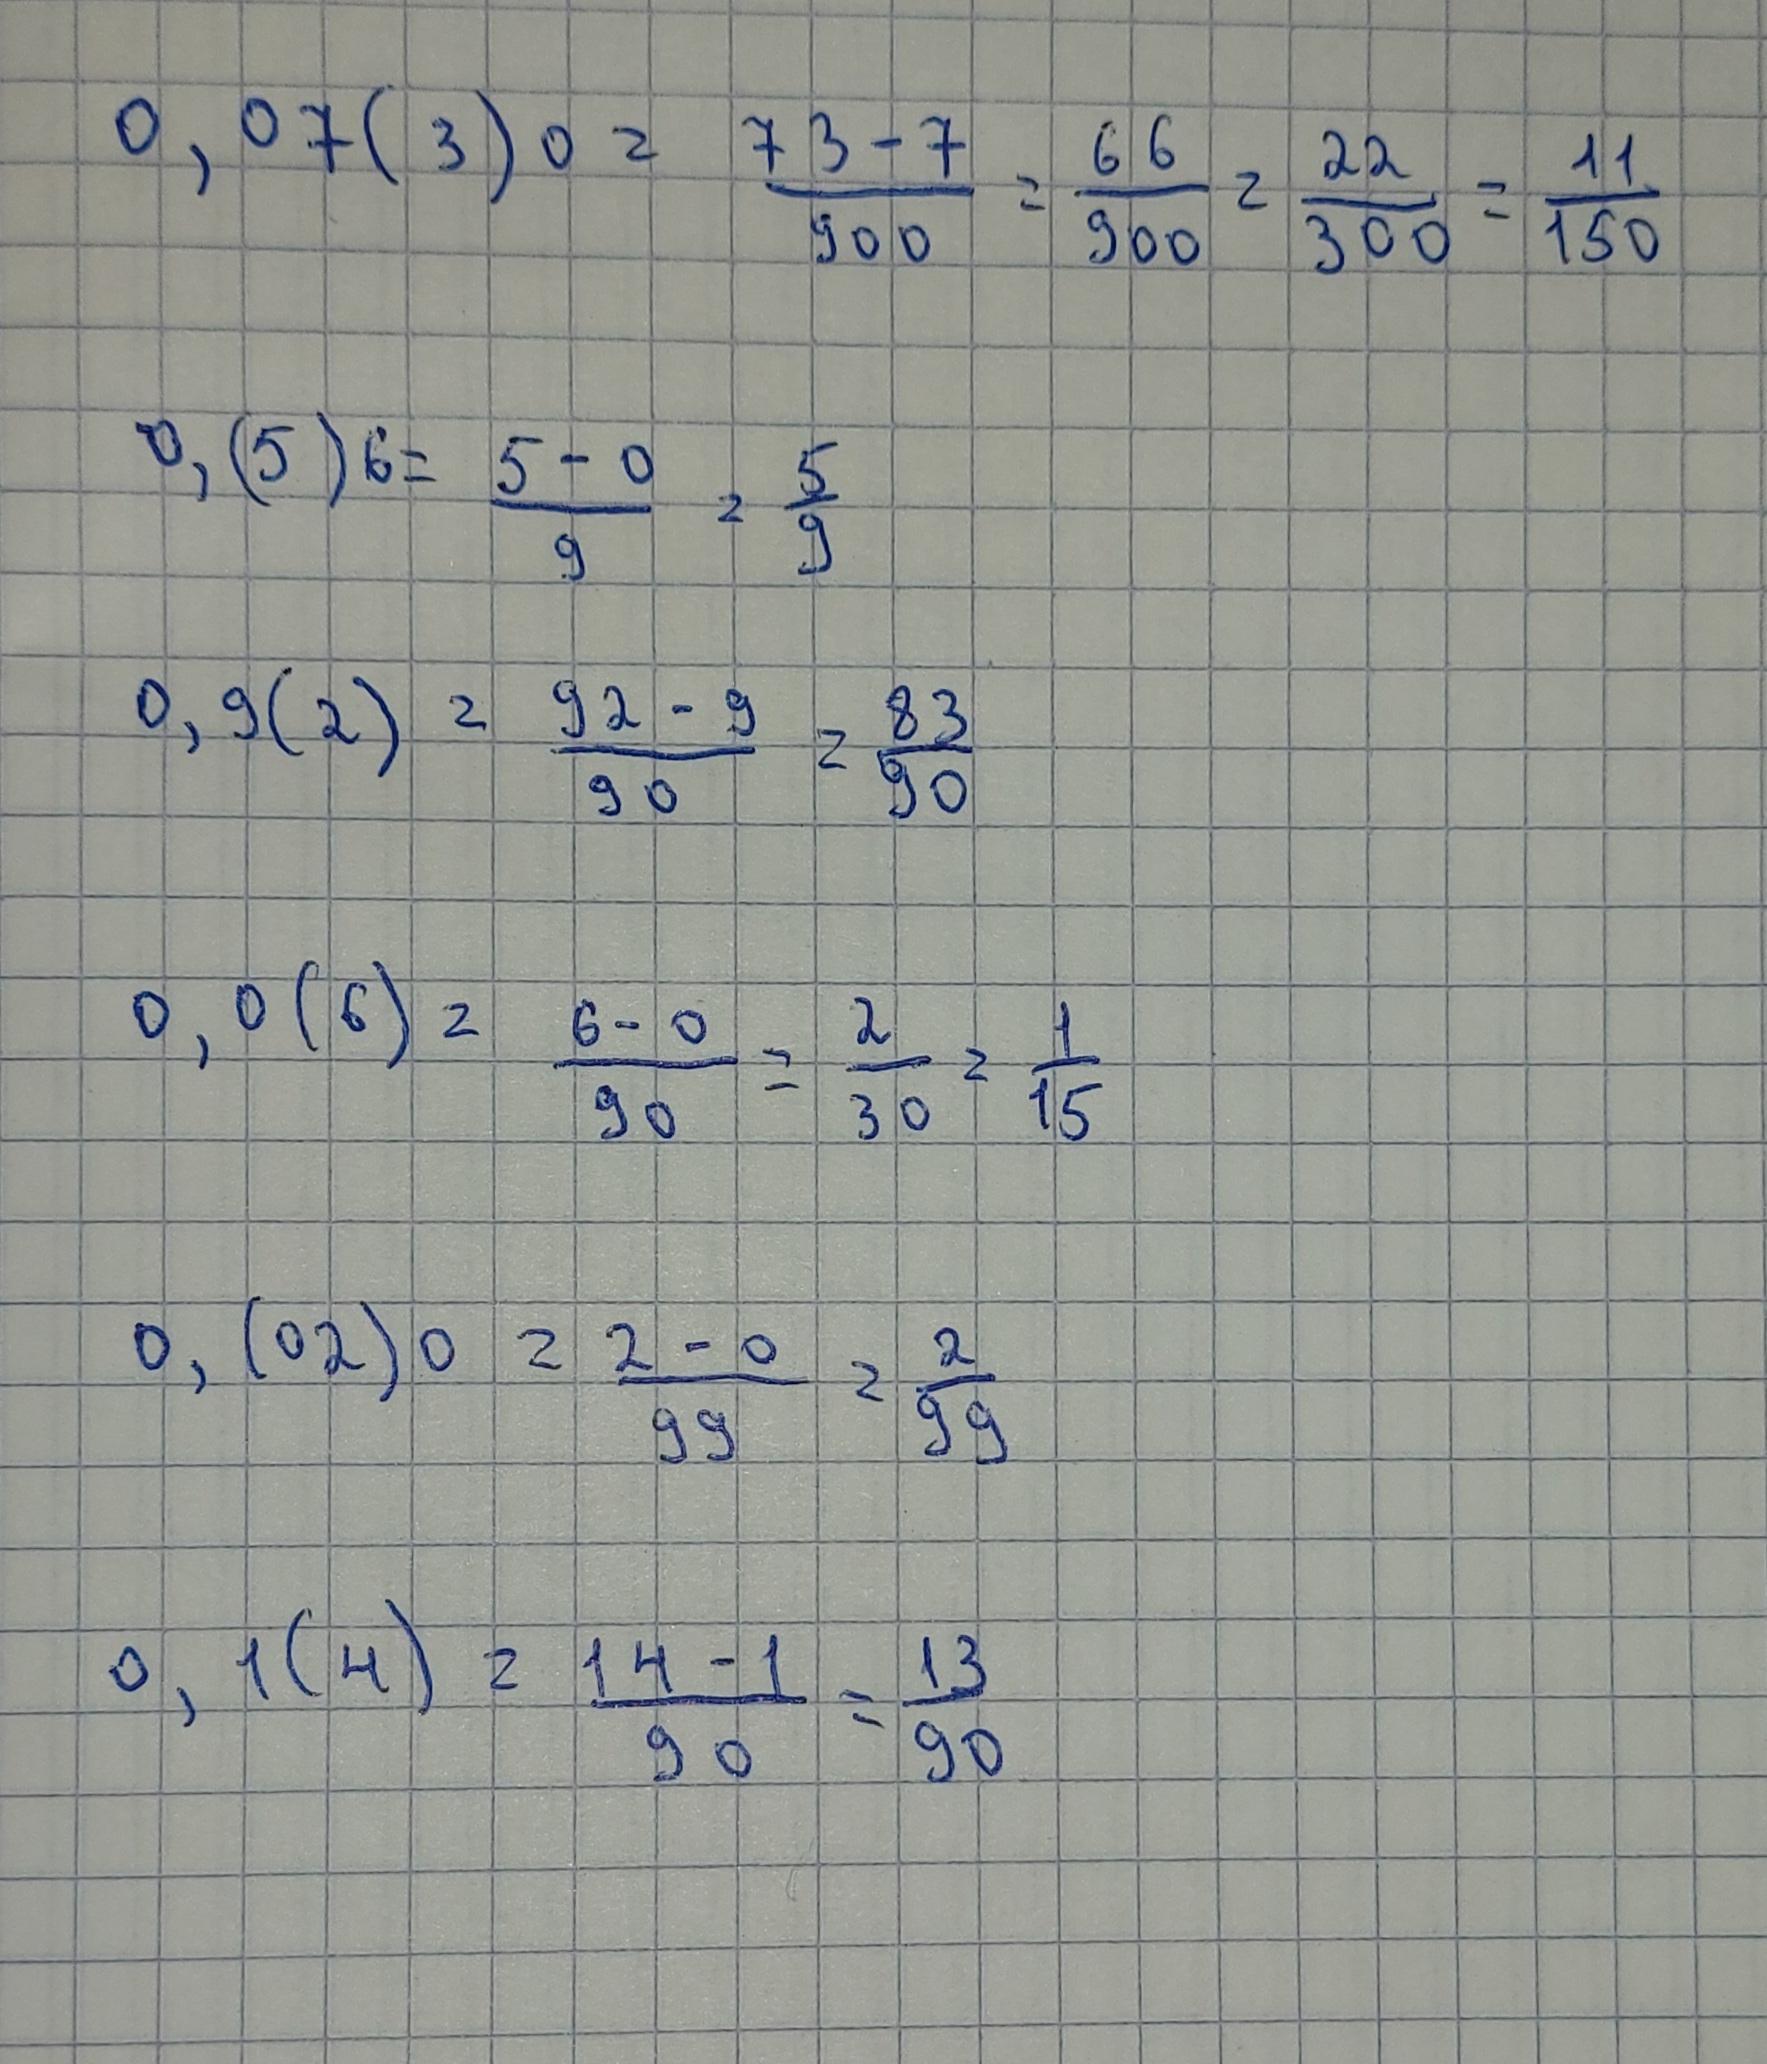 0,07(3)0 = 73-7/900 = 66/900 = 22/300 = 11/150
0,(5)6 = 5-0/9 = 5/9
0,9(2) = 92-9/90 = 83/90
0,0(6) = 6-0/90 = 2/30 = 1/15
0,(02)0 = 2-0/99 = 2/99
0,1(4) = 14-1/90 = 13/90